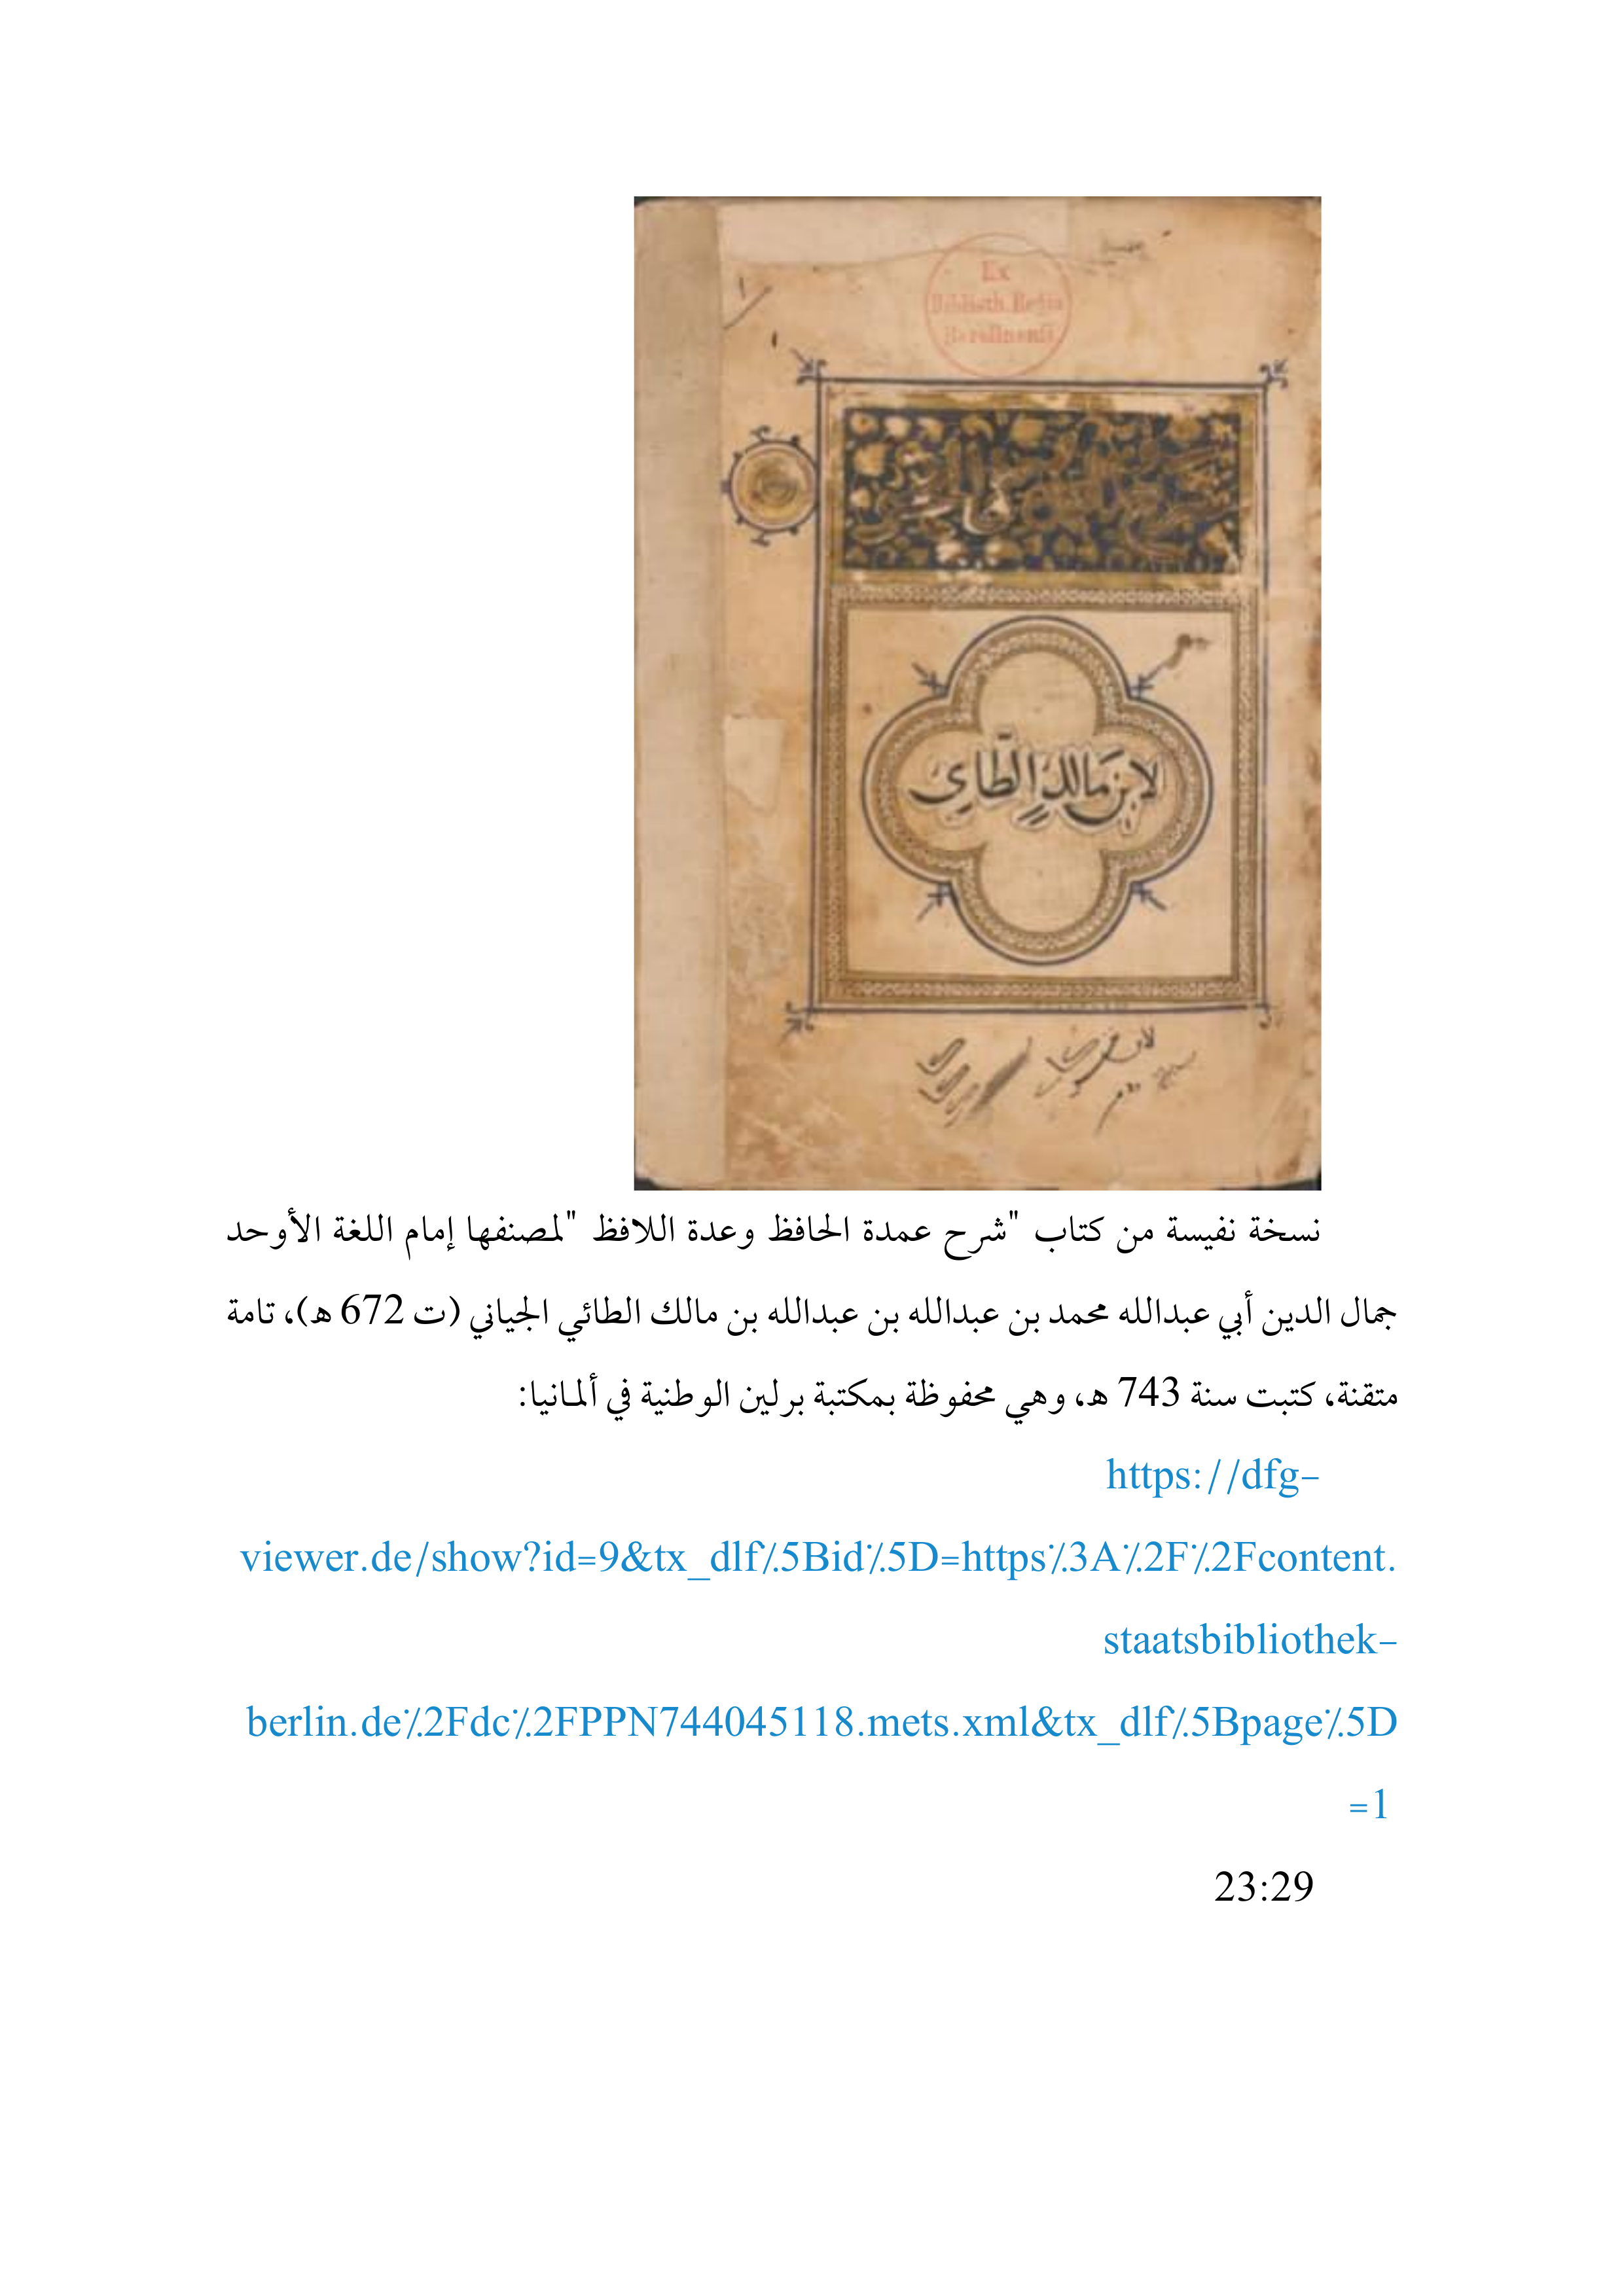 Ex
Biblioth. Regia
Berolinensi.
لابن مالك الطاي
نسخة نفيسة من كتاب "شرح عمدة الحافظ وعدة اللافظ "لمصنفها إمام اللغة الأوحد
جمال الدين أبي عبدالله محمد بن عبدالله بن عبدالله بن مالك الطائي الجياني (ت 672 هـ)، تامة
متقنة، كتبت سنة 743 هـ، وهي محفوظة بمكتبة برلين الوطنية في ألمانيا:
https://dfg-
viewer.de/show?id=9&tx_dlf٪5Bid٪5D=https٪3A٪2F٪2Fcontent.
staatsbibliothek-
berlin.de٪2Fdc٪2FPPN744045118.mets.xml&tx_dlf٪5Bpage٪5D
=1
23:29